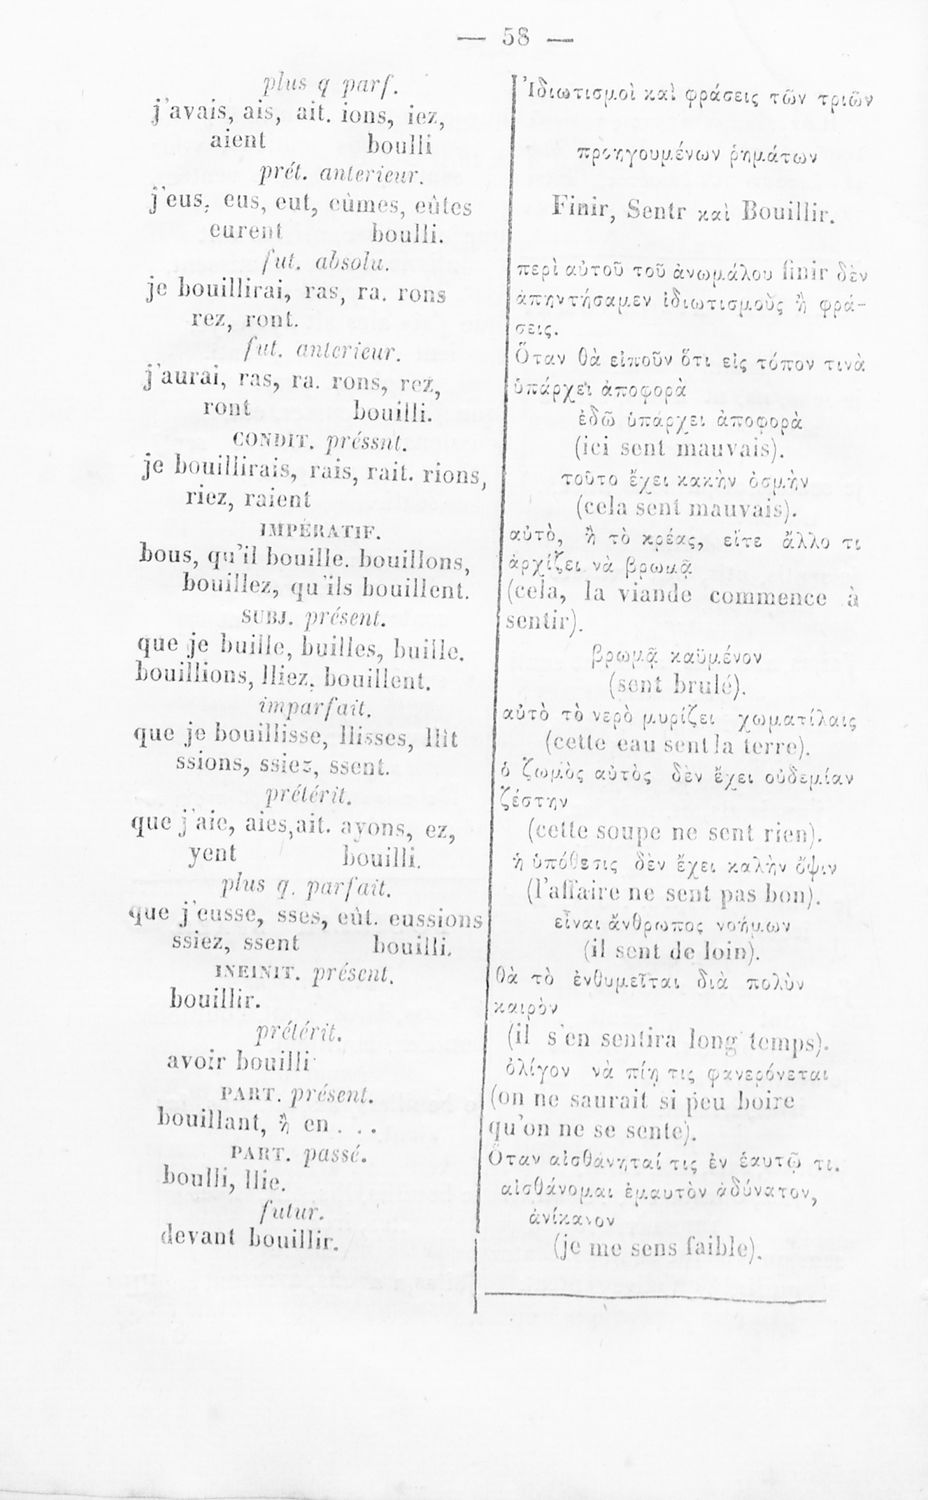 — 58 —
plus q parf.
j'avais, ais, ait. ions, iez,
aient boulli
prét. anterieur.
j'eus, eus, eut, eûmes, eûtes
eurent boulli.
fut. absolu.
je bouillirai, ras, ra. rons
rez, ront.
fut. anterieur.
j'aurai, ras, ra. rons, rez,
ront bouilli.
CONDIT. préssnt.
je bouillirais, rais, rait. rions,
riez, raient
IMPÉRATIF.
bous, qu'il bouille. bouillons,
bouillez, qu'ils bouillent.
SUBJ. présent.
que je buille, builles, buille.
bouillions, lliez, bouillent.
imparfait.
que je bouillisse, llisses, llît
ssions, ssiez, ssent.
prétérit.
que j'aie, aies, ait. ayons, ez,
yent bouilli.
plus q. parfait.
que j'eusse, sses, eût. eussions
ssiez, ssent bouilli.
INEINIT. présent.
bouillir.
prétérit.
avoir bouilli
PART. présent.
bouillant, ἢ en . . .
PART. passé.
boulli, llie.
futur.
devant bouillir.
Ἰδιωτισμοὶ καὶ φράσεις τῶν τριῶν
προηγουμένων ῥημάτων
Finir, Sentr καὶ Bouillir.
περὶ αὐτοῦ τοῦ ἀνωμάλου finir δὲν
ἀπηντήσαμεν ἰδιωτισμοὺς ἢ φρά-
σεις.
Ὅταν θὰ εἰποῦν ὅτι εἰς τόπον τινὰ
ὑπάρχει ἀποφορὰ
ἐδῶ ὑπάρχει ἀποφορὰ
(ici sent mauvais).
τοῦτο ἔχει κακὴν ὀσμὴν
(cela sent mauvais).
αὐτὸ, ἢ τὸ κρέας, εἴτε ἄλλο τι
ἀρχίζει νὰ βρωμᾷ
(cela, la viande commence à
sentir).
βρωμᾷ καϋμένον
(sent brulé).
αὐτὸ τὸ νερὸ μυρίζει χωματίλαις
(cette eau sent la terre).
ὁ ζωμὸς αὐτὸς δὲν ἔχει οὐδεμίαν
ζέστην
(cette soupe ne sent rien).
ἡ ὑπόθεσις δὲν ἔχει καλὴν ὄψιν
(l'affaire ne sent pas bon).
εἶναι ἄνθρωπος νοήμων
(il sent de loin).
θὰ τὸ ἐνθυμεῖται διὰ πολὺν
καιρὸν
(il s'en sentira long temps).
ὀλίγον νὰ πίῃ τις φανερόνεται
(on ne saurait si peu boire
qu'on ne se sente).
Ὅταν αἰσθάνηταί τις ἐν ἑαυτῷ τι.
αἰσθάνομαι ἐμαυτὸν ἀδύνατον,
ἀνίκανον
(je me sens faible).